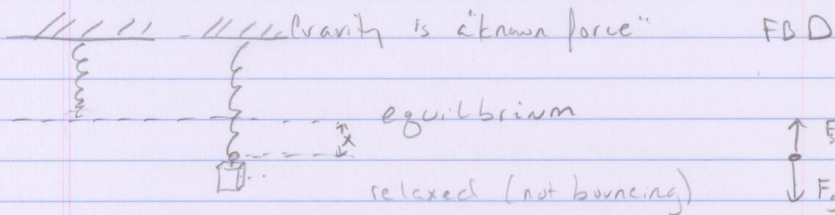 Gravity is a "known force" FBD
equilbrium
x
relaxed (not bouncing)